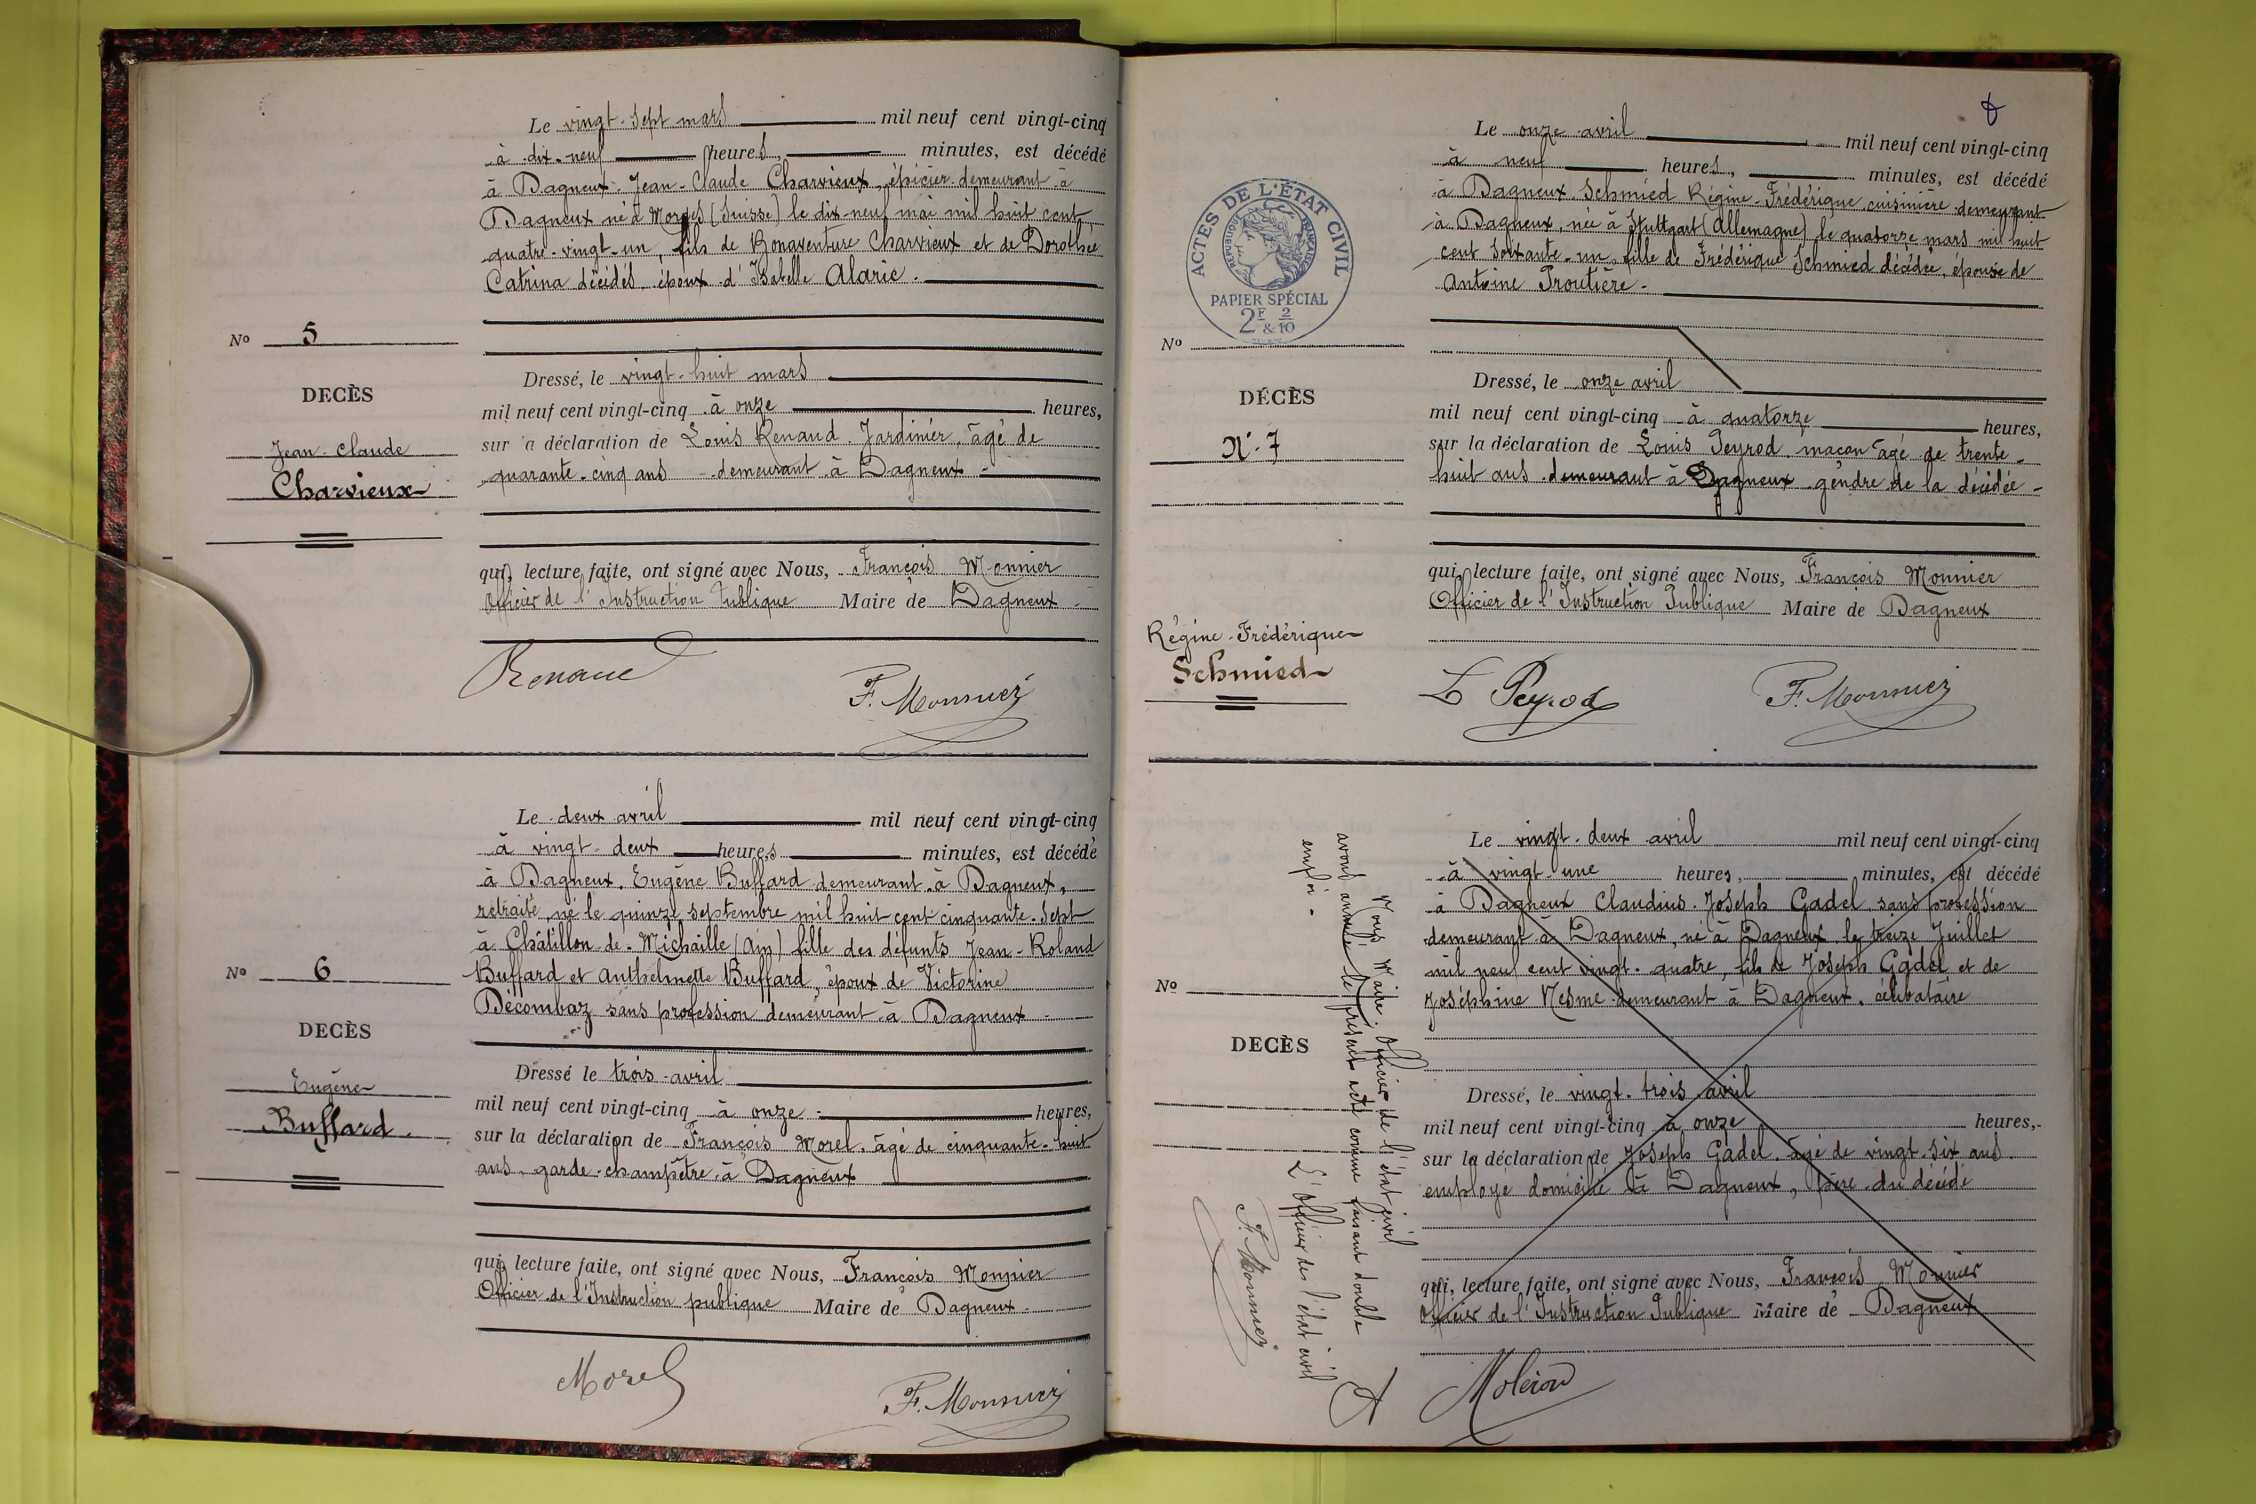 Le vingt-sept mars mil neuf cent vingt-cinq
à dix-neuf heures, minutes, est décédé
à Dagneux. Jean-Claude Charvieux, épicier demeurant à
Dagneux, né à Morges (Suisse) le dix-neuf mai mil huit cent
quatre-vingt-un, fils de Bonaventure Charvieux et de Dorothée
Catrina décédés, époux d'Isabelle Alaric.
No 5
DECÈS
Jean-Claude
Charvieux
Dressé, le vingt-huit mars
mil neuf cent vingt-cinq à onze heures,
sur a déclaration de Louis Renaud. Jardinier, âgé de
quarante-cinq ans demeurant à Dagneux -
qui, lecture faite, ont signé avec Nous, François Monnier
Officier de l'Instruction Publique Maire de Dagneux -
Renaud F. Monnier
Le deux avril mil neuf cent vingt-cinq
à vingt-deux heures minutes, est décédé
à Dagneux. Eugène Buffard demeurant à Dagneux,
retraité, né le quinze septembre mil huit cent cinquante-sept
à Châtillon-de-Michaille (Ain) fille des défunts Jean-Roland
Buffard et Anthelmette Buffard, époux de Victorine
Décombaz sans profession demeurant à Dagneux -
No 6
DECÈS
Eugène
Buffard.
Dressé le trois avril
mil neuf cent vingt-cinq à onze - heures,
sur la déclaration de François Morel. âgé de cinquante-huit
ans, garde-champêtre à Dagneux
qui, lecture faite, ont signé avec Nous, François Monnier
Officier de l'Instruction publique Maire de Dagneux -
Morel F. Monnier
Le onze avril mil neuf cent vingt-cinq
à neuf heures, minutes, est décédé
à Dagneux. Schmied Régine-Frédérique cuisinière demeurant
à Dagneux, née à Stuttgart (Allemagne) le quatorze mars mil huit
cent soixante-un, fille de Frédérique Schmied décédée, épouse de
Antoine Troutière -
ACTES DE L'ÉTAT CIVIL
RÉPUBLIQUE FRANÇAISE
PAPIER SPÉCIAL
2F & 2/10
No
DÉCÈS
N°-7
Régine-Frédérique
Schmied
Dressé, le onze avril
mil neuf cent vingt-cinq à quatorze heures,
sur la déclaration de Louis Peyrod, maçon âgé de trente-
huit ans demeurant à Dagneux gendre de la décédée -
qui, lecture faite, ont signé avec Nous, François Monnier
Officier de l'Instruction Publique Maire de Dagneux
L Peyrod F. Monnier
Le vingt-deux avril mil neuf cent vingt-cinq
à vingt-une heures, minutes, est décédé
à Dagneux Claudius-Joseph Gadel sans profession
demeurant à Dagneux, né à Dagneux le treize Juillet
mil neuf cent vingt-quatre, fils de Joseph Gadel et de
Joséphine Nesme demeurant à Dagneux. célibataire
No
DECÈS
Nous Maire, Officier de l'état civil
avons annulé le présent acte comme faisant double
emploi -
L'Officier de l'état civil
F. Monnier
Dressé, le vingt-trois avril
mil neuf cent vingt-cinq à onze heures,
sur la déclaration de Joseph Gadel âgé de vingt-six ans
employé domicilié à Dagneux, père du décédé
qui, lecture faite, ont signé avec Nous, François Monnier
Officier de l'Instruction Publique Maire de Dagneux